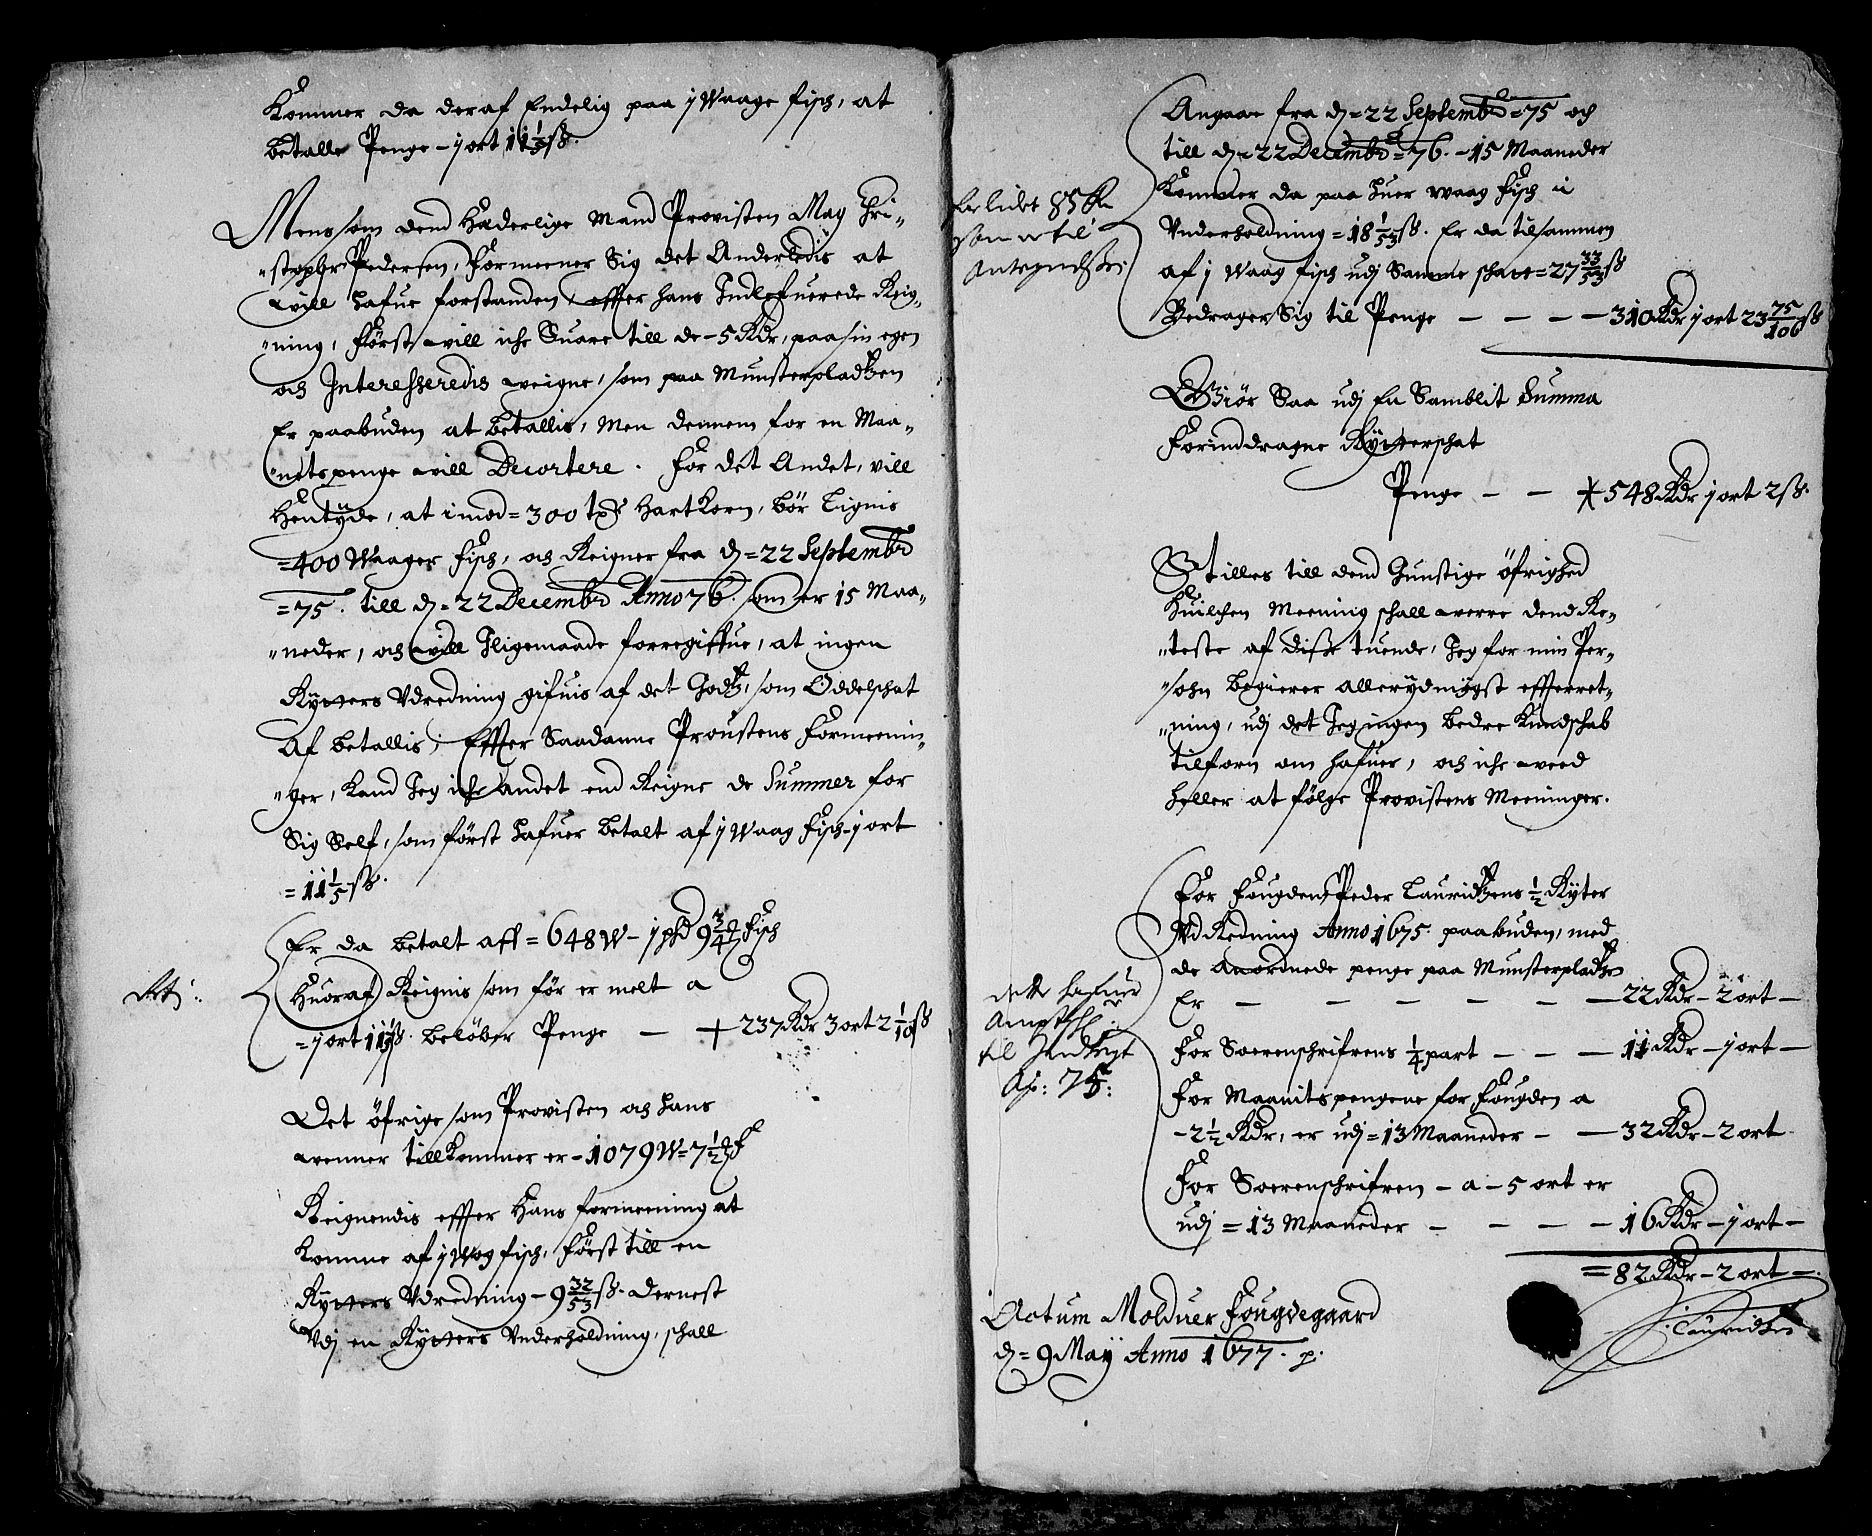 Kommer da deraf Endelig paa j Waage fisch, at
betalle Penge – j ort 11 1/5 ß.
Mens som dend Hæderlige Mand Provisten Mag Chri-
"stopher Pedersen, Formeener Sig det Anderledis at
will hafue forstanden, effter hans Indlefuerede Reig-
"ning, Først will iche Suare till de – 5 Rdr, paa sin egen
och Interesseredis weigne, som paa Munsterpladtzen
Er paabuden at betallis, Men dennem for en Maa-
"netspenge will Decortere. For det Andet, vill
Hentyde, at imod = 300 tdr Hart Korn, bör Lignis
= 400 Waager Fisch, och Reigner fra d = 22 Septembr
= 75. till d = 22 Decembr Anno 76. som er 15 Maa-
"neder, och will Iligemaade forregifue, at ingen
Rytters Udredning gifuis af det Godtz, som Oddelschat
Af betallis; Effter Saadanne Proustens Formeenin-
"ger, Kand Jeg iche andet end Reigne de Summer for
Sig Self, som först hafuer betalt af j Waag Fisch – j ort
= 11 1/5 ß.
Er da betalt aff = 648 W – j pd 9 3/4 Fisch
Huoraf Reignis som för er melt a
= j ort 11 1/5 ß. belöber Penge — + 237 Rdr 3 ort 2 1/10 ß
Det öfrige som Provisten och hans
wenner till Kommer er – 1079 W = 7 1/2 F
Reignendis effter Hans formeening at
komme af j Wog fisch, Först till en
Rytters Udredning – 9 32/53 ß. Dernest
Udj en Rytters Underholdning, schall
Angaae fra d = 22 Septembr = 75 och
till d = 22 Decembr = 76. – 15 Maaneder
Kommer da paa huer Waag Fisch i
Underholdning = 18 1/53 ß. Er da tilsammen
af j Waag fisch udj Samme schatt = 27 33/53 ß
Bedrager Sig til Penge — — — — 310 Rdr j ort 23 75/106 ß
Giör Saa udj En Samblit Summa
Forinddragne Rytterschat
Penge — — 548 Rdr j ort 2 ß.
Stilles till dend Gunstige öfrighed
Huilchen Meening schall werre dend Re-
"teste af disse tuende, Jeg for min Per-
"sohn begierer allerydmygst effterret-
"ning, udj det Jeg ingen bedre Kundschab
tilforn om hafuer, och iche weed
heller at følge Provistens Meeninger.
For Fougden Peder Lauridtzens 1/2 Ryter
Ud Redning Anno 1675 paabuden, med
de Anordnede penge paa Munsterpladtzen
Er — — — — — — 22 Rdr – 2 ort –
For Soerenschrifrens 1/4 part — — — 11 Rdr – j ort –
For Maanitspengene for Fougden a
– 2 1/2 Rdr, er udj = 13 Maaneder — — 32 Rdr – 2 ort
For Soerenschrifren – a – 5 ort er
udj = 13 Maaneder — — — — 16 Rdr – j ort –
= 82 Rdr – 2 ort –
dette hafuer
til Indtegt
Ao: 75:
Actum Molduer Fougdegaard
d = 9 Maij Anno 1677. p.
Lauridtzen